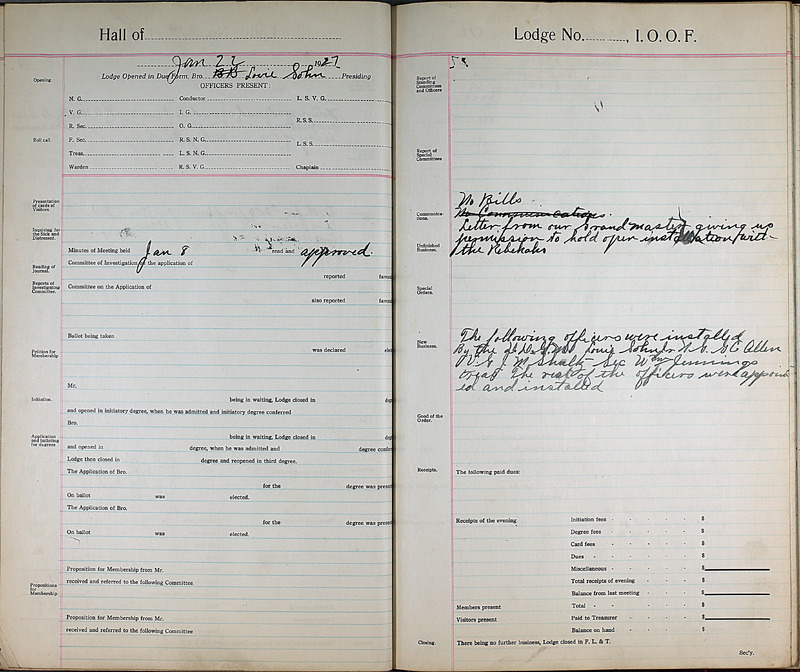 Hall of
Jan 22 1927
Lodge Opened in Due Form, Bro. Louie Sohn Presiding
OFFICERS PRESENT:
Opening
N. G. Conductor L. S. V. G.
V. G. I. G. R.S.S.
R. Sec. O. G.
Roll call.
F. Sec. R. S. N. G. L. S. S.
Treas. L. S. N. G.
Warden R. S. V. G. Chaplain
Presentation of cards of Visitors
Inquiring for the Sick and Distressed.
Minutes of Meeting held Jan 8 read and approved.
Reading of Journal.
Committee of Investigation of the application of
reported favor
Reports of Investigating Committee.
Committee on the Application of
also reported favor
Ballot being taken
was declared elec
Petition for Membership
Mr.
Initiation.
being in waiting, Lodge closed in deg
and opened in initiatory degree, when he was admitted and initiatory degree conferred
Bro.
Application and balloting for degrees
being in waiting, Lodge closed in deg
and opened in degree, when he was admitted and degree confer
Lodge then closed in degree and reopened in third degree.
The Application of Bro.
for the degree was presen
On ballot was elected.
The Application of Bro.
for the degree was presen
On ballot was elected.
Proposition for Membership from Mr.
received and referred to the following Committee
Propositions for Membership
Proposition for Membership from Mr.
received and referred to the following Committee
Lodge No. , I. O. O. F.
Report of Standing Committees and Officers
Report of Special Committees
No Bills
No Communications.
Communications.
Letter from our Grand master giving up
permission to hold open installation with
the Rebekahs
Unfinished Business.
Special Orders.
New Business.
The following officers were installed
By the D.D.G.M. Louie Sohn N.G. Allen
V.G. M Shultz Sec Wm Jennings
Treas The rest of the officers were appoint
ed and installed
Good of the Order.
Receipts.
The following paid dues:
Receipts of the evening Initiation fees $
Degree fees $
Card fees $
Dues $
Miscellaneous $
Total receipts of evening $
Balance from last meeting $
Members present Total $
Visitors present Paid to Treasurer $
Balance on hand $
Closing. There being no further business, Lodge closed in F. L. & T.
Sec'y.